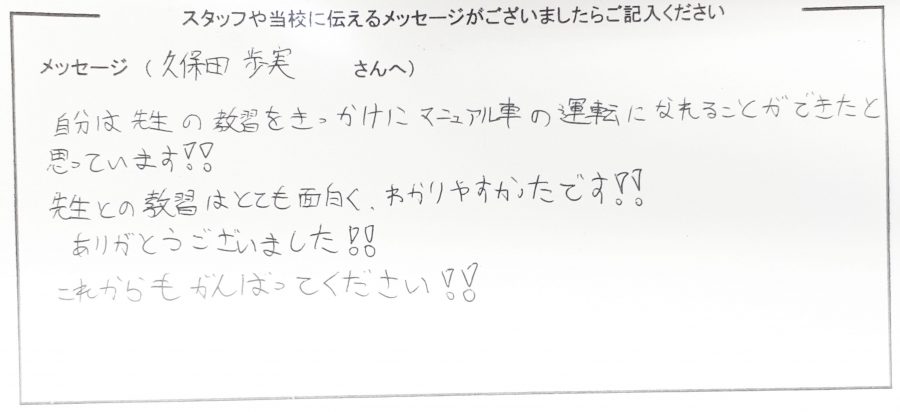 スタッフや当校に伝えるメッセージがございましたらご記入ください
メッセージ（久保田 歩実 さんへ）
自分は先生の教習をきっかけにマニュアル車の運転になれることができたと
思っています!!
先生との教習はとても面白く、わかりやすかったです!!
ありがとうございました!!
これからもがんばってください!!